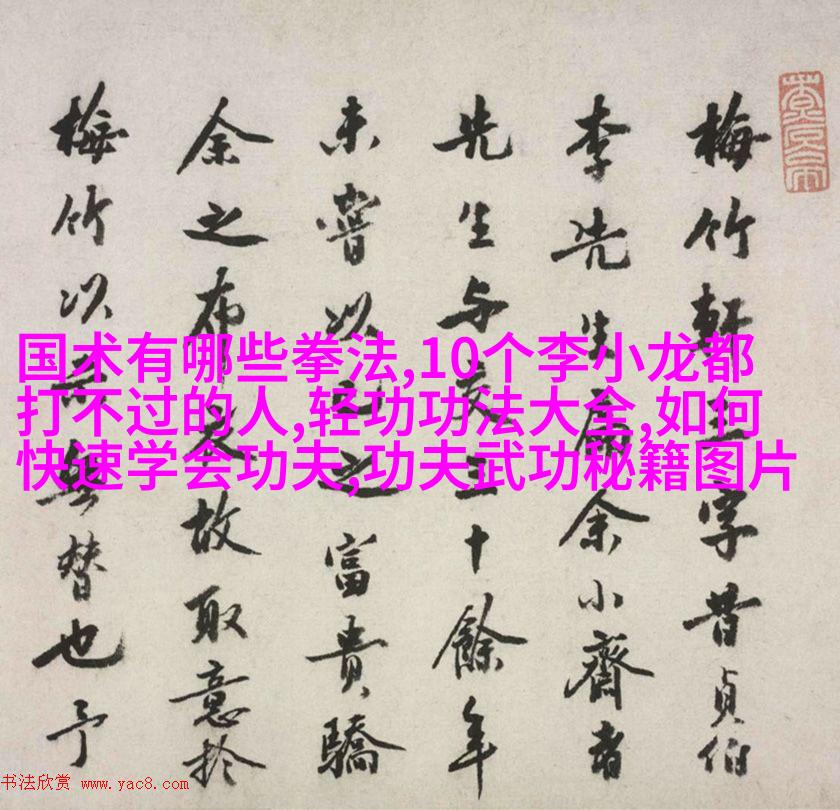 国术有哪些拳法,10个李小龙都
打不过的人,轻功功法大全,如何
快速学会功夫,功夫武功秘籍图片
梅竹軒三字昔貞伯
李先生扁余小齋者
先生与交三十餘年
未嘗以己之富貴驕
余之布衣故取意於
梅竹以示無替也予
书法欣赏 www.yac8.com